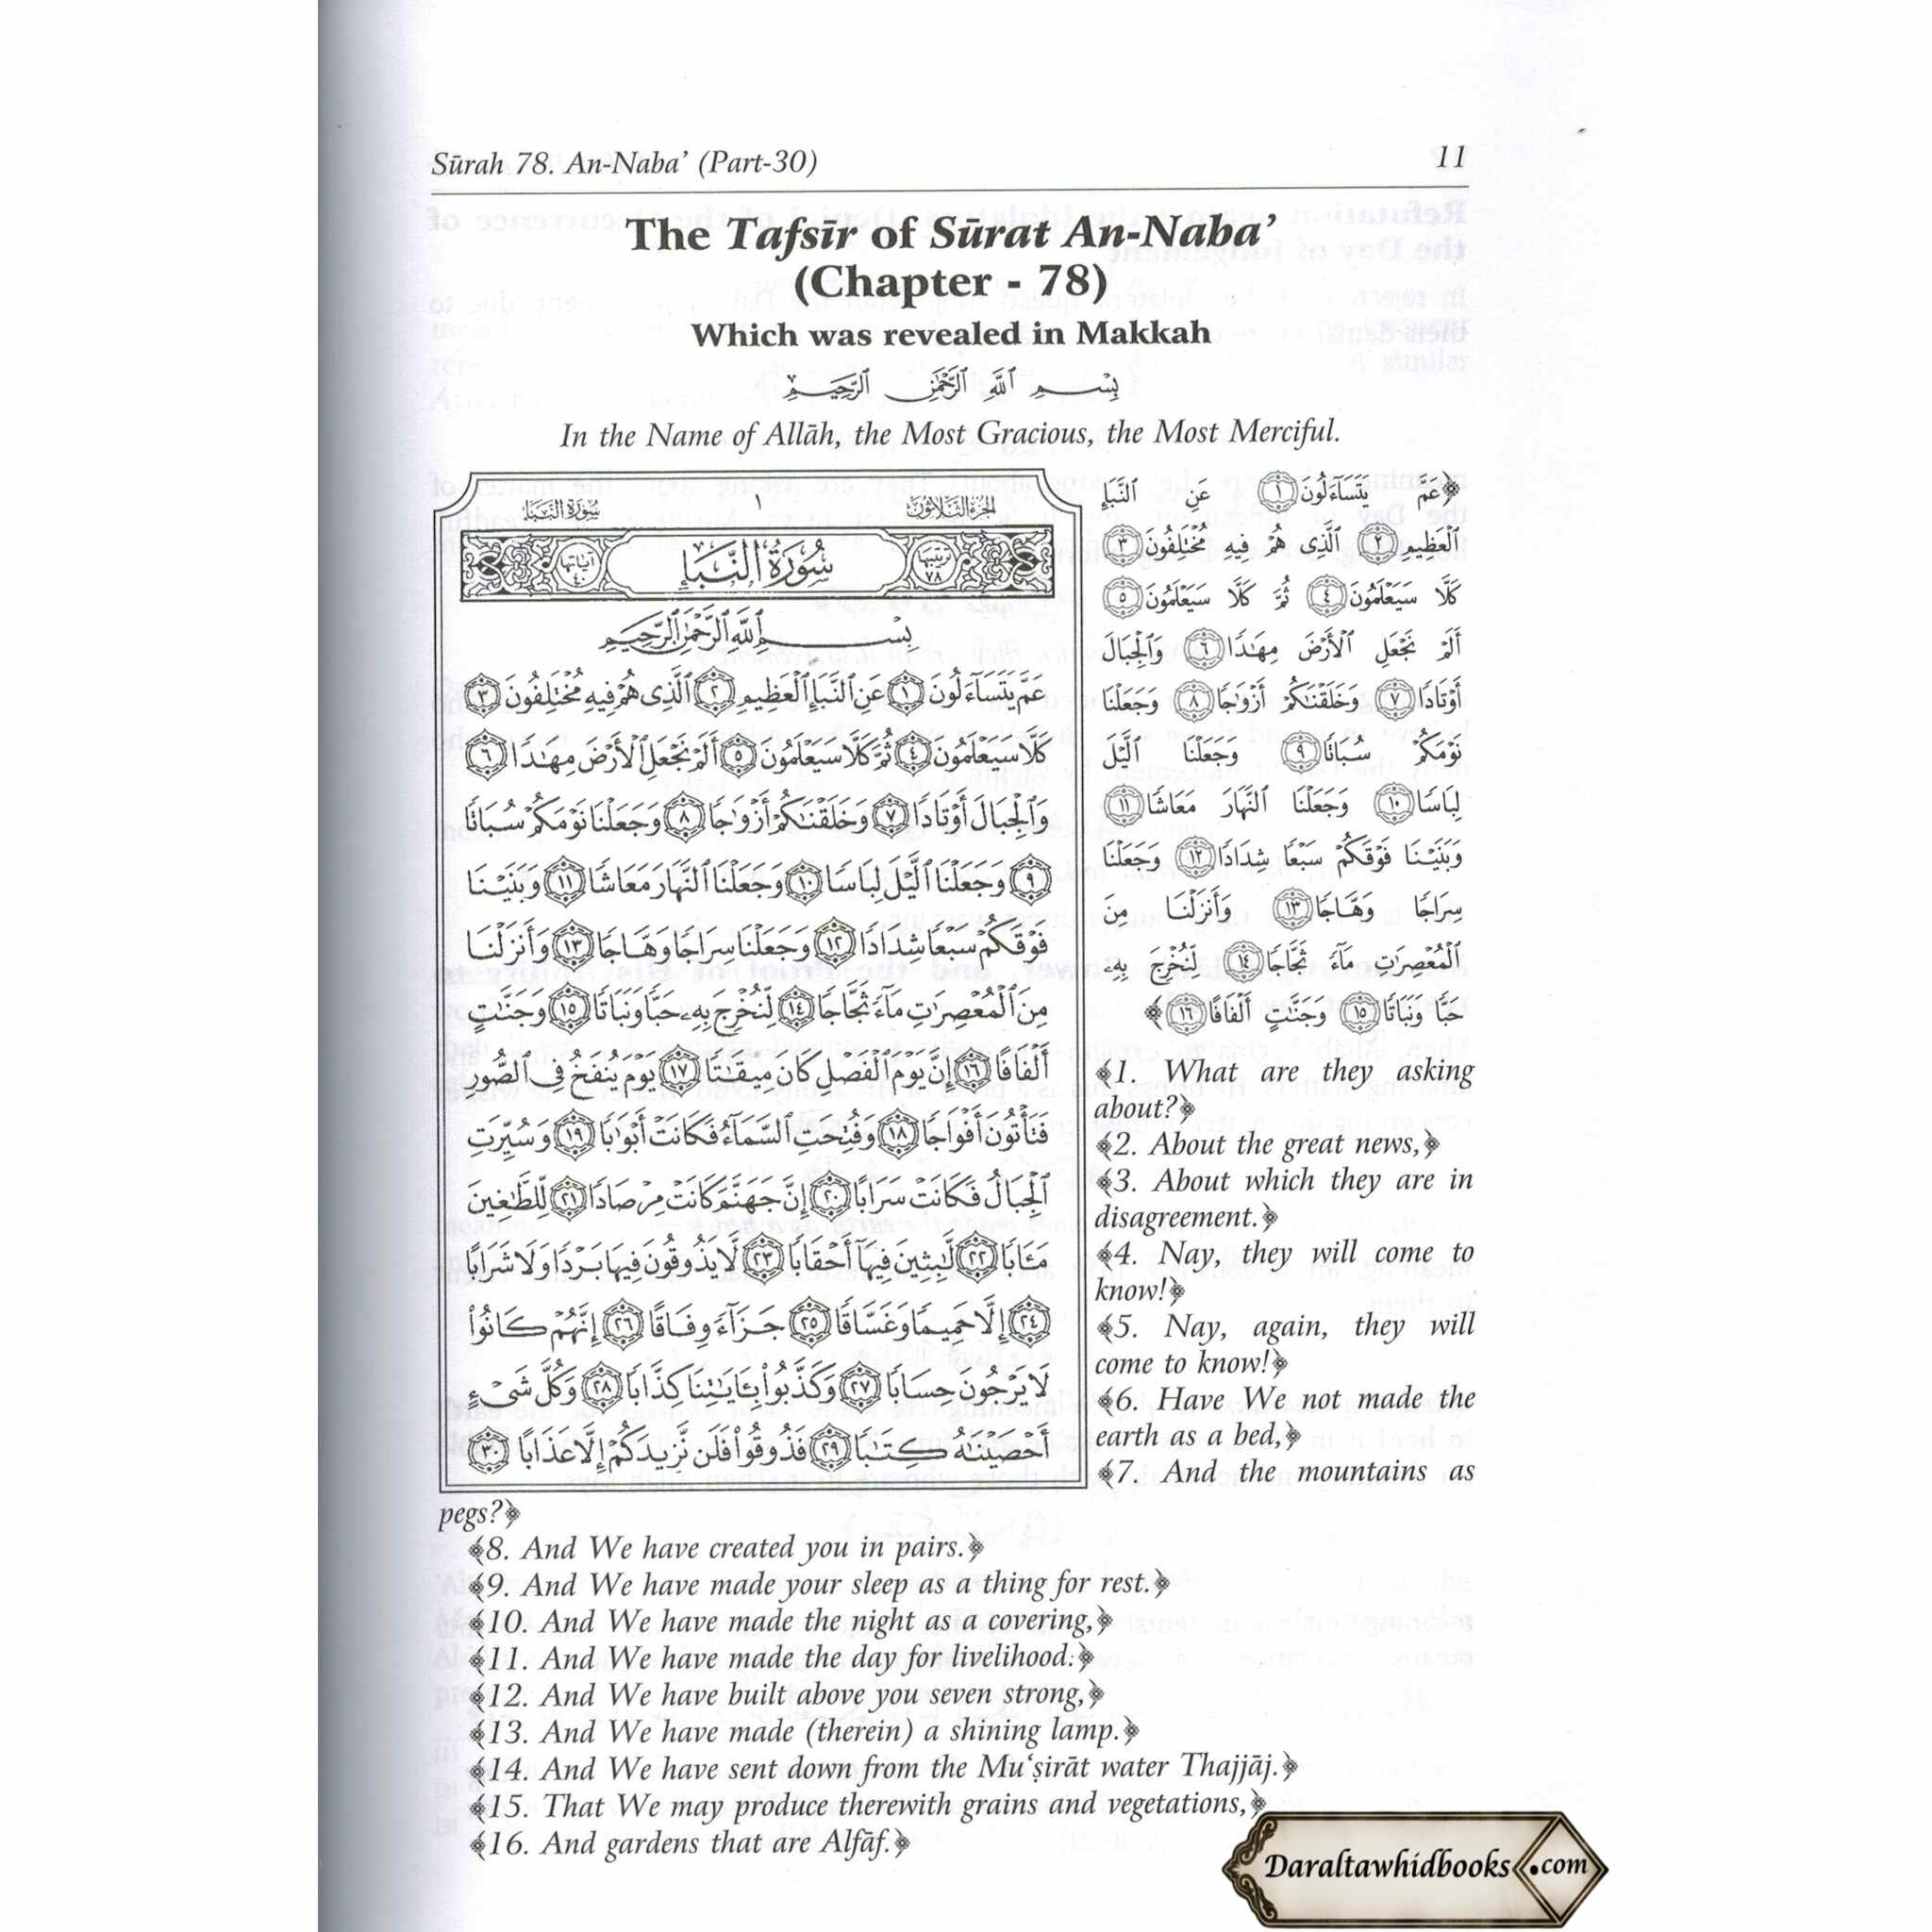 Sūrah 78. An-Naba’ (Part-30) 11
The Tafsīr of Sūrat An-Naba’
(Chapter - 78)
Which was revealed in Makkah
بِسْمِ ٱللَّهِ ٱلرَّحْمَٰنِ ٱلرَّحِيمِ
In the Name of Allāh, the Most Gracious, the Most Merciful.
الجزء الثلاثون ١ سورة النبأ
ترتيبها ٧٨ سُورَةُ النَّبَإِ آياتها ٤٠
بِسْمِ ٱللَّهِ ٱلرَّحْمَٰنِ ٱلرَّحِيمِ
عَمَّ يَتَسَآءَلُونَ ١ عَنِ ٱلنَّبَإِ ٱلْعَظِيمِ ٢ ٱلَّذِى هُمْ فِيهِ مُخْتَلِفُونَ ٣
كَلَّا سَيَعْلَمُونَ ٤ ثُمَّ كَلَّا سَيَعْلَمُونَ ٥ أَلَمْ نَجْعَلِ ٱلْأَرْضَ مِهَٰدًا ٦
وَٱلْجِبَالَ أَوْتَادًا ٧ وَخَلَقْنَٰكُمْ أَزْوَٰجًا ٨ وَجَعَلْنَا نَوْمَكُمْ سُبَاتًا
٩ وَجَعَلْنَا ٱلَّيْلَ لِبَاسًا ١٠ وَجَعَلْنَا ٱلنَّهَارَ مَعَاشًا ١١ وَبَنَيْنَا
فَوْقَكُمْ سَبْعًا شِدَادًا ١٢ وَجَعَلْنَا سِرَاجًا وَهَّاجًا ١٣ وَأَنزَلْنَا
مِنَ ٱلْمُعْصِرَٰتِ مَآءً ثَجَّاجًا ١٤ لِّنُخْرِجَ بِهِۦ حَبًّا وَنَبَاتًا ١٥ وَجَنَّٰتٍ
أَلْفَافًا ١٦ إِنَّ يَوْمَ ٱلْفَصْلِ كَانَ مِيقَٰتًا ١٧ يَوْمَ يُنفَخُ فِى ٱلصُّورِ
فَتَأْتُونَ أَفْوَاجًا ١٨ وَفُتِحَتِ ٱلسَّمَآءُ فَكَانَتْ أَبْوَٰبًا ١٩ وَسُيِّرَتِ
ٱلْجِبَالُ فَكَانَتْ سَرَابًا ٢٠ إِنَّ جَهَنَّمَ كَانَتْ مِرْصَادًا ٢١ لِّلطَّٰغِينَ
مَـَٔابًا ٢٢ لَّٰبِثِينَ فِيهَآ أَحْقَابًا ٢٣ لَّا يَذُوقُونَ فِيهَا بَرْدًا وَلَا شَرَابًا
٢٤ إِلَّا حَمِيمًا وَغَسَّاقًا ٢٥ جَزَآءً وِفَاقًا ٢٦ إِنَّهُمْ كَانُوا۟
لَا يَرْجُونَ حِسَابًا ٢٧ وَكَذَّبُوا۟ بِـَٔايَٰتِنَا كِذَّابًا ٢٨ وَكُلَّ شَىْءٍ
أَحْصَيْنَٰهُ كِتَٰبًا ٢٩ فَذُوقُوا۟ فَلَن نَّزِيدَكُمْ إِلَّا عَذَابًا ٣٠
﴿عَمَّ يَتَسَآءَلُونَ ١ عَنِ ٱلنَّبَإِ
ٱلْعَظِيمِ ٢ ٱلَّذِى هُمْ فِيهِ مُخْتَلِفُونَ ٣
كَلَّا سَيَعْلَمُونَ ٤ ثُمَّ كَلَّا سَيَعْلَمُونَ ٥
أَلَمْ نَجْعَلِ ٱلْأَرْضَ مِهَٰدًا ٦ وَٱلْجِبَالَ
أَوْتَادًا ٧ وَخَلَقْنَٰكُمْ أَزْوَٰجًا ٨ وَجَعَلْنَا
نَوْمَكُمْ سُبَاتًا ٩ وَجَعَلْنَا ٱلَّيْلَ
لِبَاسًا ١٠ وَجَعَلْنَا ٱلنَّهَارَ مَعَاشًا ١١
وَبَنَيْنَا فَوْقَكُمْ سَبْعًا شِدَادًا ١٢ وَجَعَلْنَا
سِرَاجًا وَهَّاجًا ١٣ وَأَنزَلْنَا مِنَ
ٱلْمُعْصِرَٰتِ مَآءً ثَجَّاجًا ١٤ لِّنُخْرِجَ بِهِۦ
حَبًّا وَنَبَاتًا ١٥ وَجَنَّٰتٍ أَلْفَافًا ١٦﴾
﴾1. What are they asking
about?﴿
﴾2. About the great news,﴿
﴾3. About which they are in
disagreement.﴿
﴾4. Nay, they will come to
know!﴿
﴾5. Nay, again, they will
come to know!﴿
﴾6. Have We not made the
earth as a bed,﴿
﴾7. And the mountains as
pegs?﴿
﴾8. And We have created you in pairs.﴿
﴾9. And We have made your sleep as a thing for rest.﴿
﴾10. And We have made the night as a covering,﴿
﴾11. And We have made the day for livelihood.﴿
﴾12. And We have built above you seven strong,﴿
﴾13. And We have made (therein) a shining lamp.﴿
﴾14. And We have sent down from the Mu‘ṣirāt water Thajjāj.﴿
﴾15. That We may produce therewith grains and vegetations,﴿
﴾16. And gardens that are Alfāf.﴿
Daraltawhidbooks.com